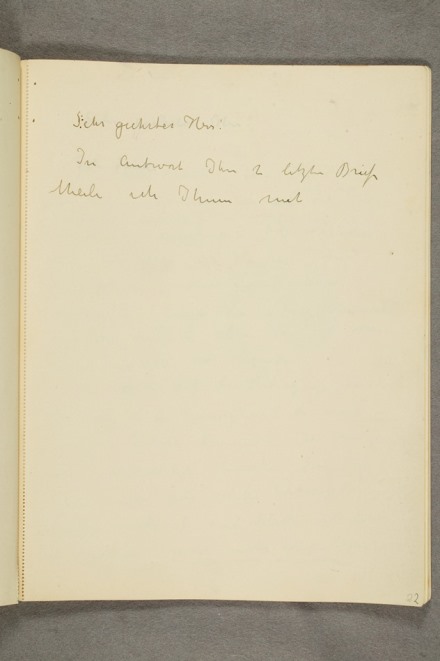 Sehr geehrter Herr:
In Antwort Ihrer 2 letzten Briefe
theile ich Ihnen mit
22